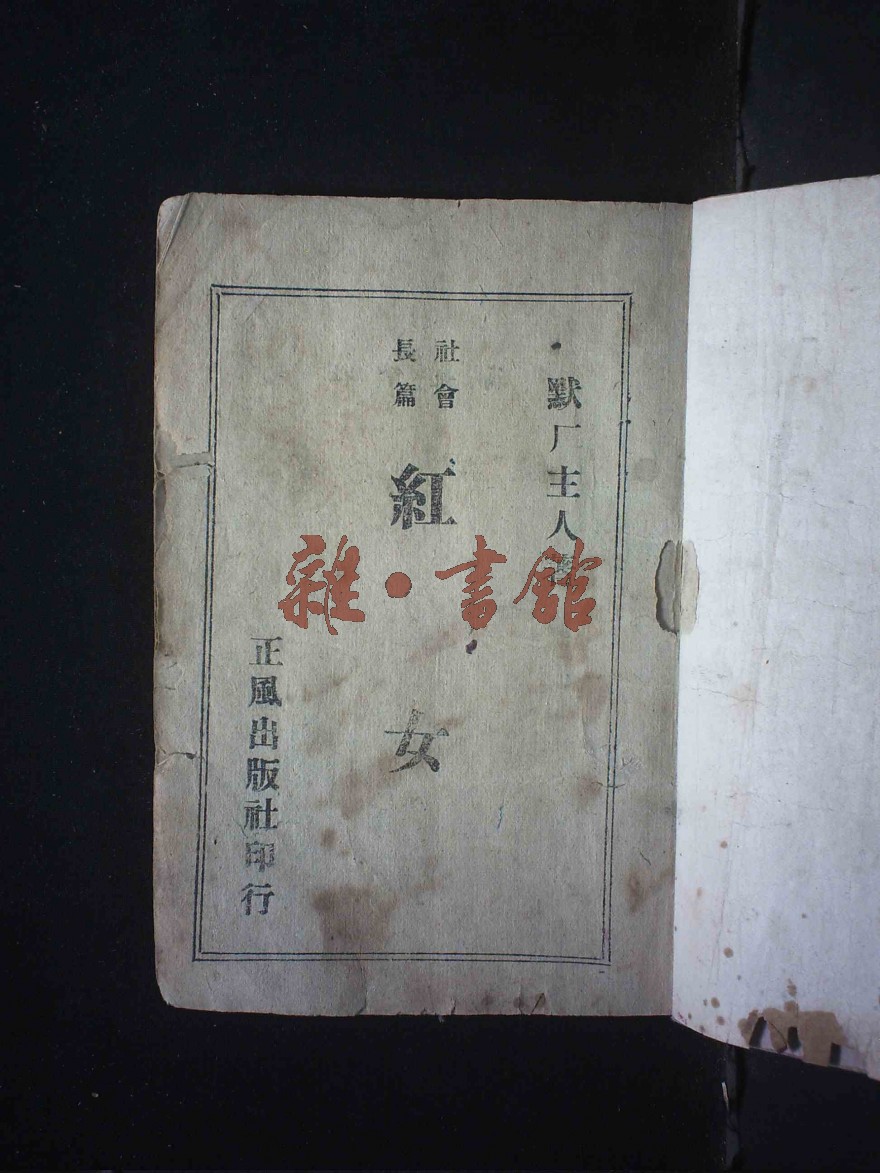 默厂主人著
社會
長篇
紅女
正風出版社印行
雜·書館